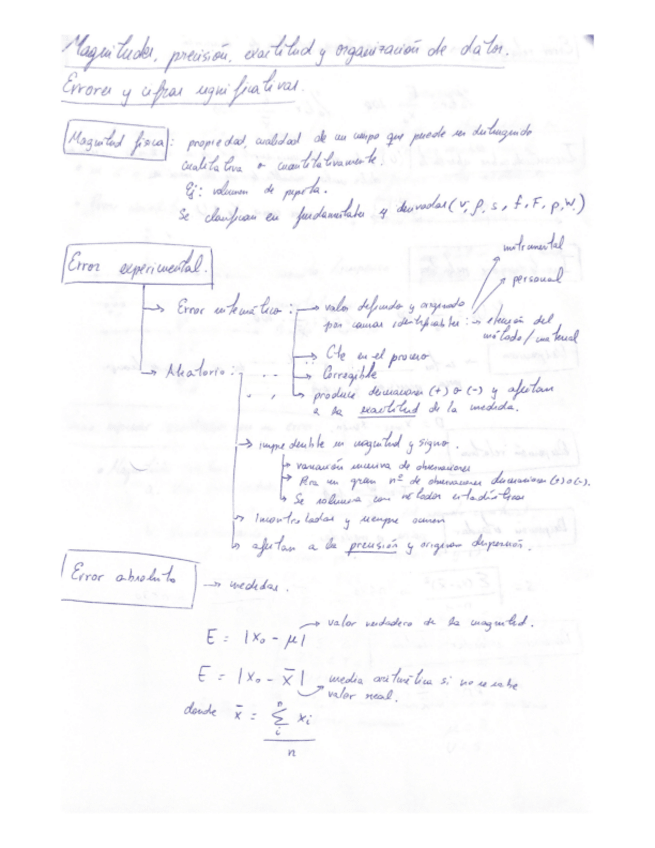 Magnitudes, precisión, exactitud y organización de datos.
Errores y cifras significativas.
Magnitud física: propiedad, cualidad de un cuerpo que puede ser distinguido
cualitativa o cuantitativamente
Ej: volumen de pipeta.
Se clasifican en fundamentales y derivadas (v, ρ, s, f, F, p, W.)
Error experimental.
instrumental
personal
→ Error sistemático: → valor definido y originado
por causas identificables: → elección del
método/material
→ Cte en el proceso
→ Corregible
→ produce desviaciones (+) o (-) y afectan
a la exactitud de la medida.
→ Aleatorio:
→ impredecible en magnitud y signo.
→ variación sucesiva de observaciones
→ Para un gran nº de observaciones desviaciones (+) o (-).
→ Se soluciona con métodos estadísticos
→ Incontrolados y siempre ocurren
→ afectan a la precisión y originan dispersión.
Error absoluto → medidas.
→ valor verdadero de la magnitud.
E = |x₀ - μ|
E = |x₀ - x̄| media aritmética si no se sabe
→ valor real.
donde x̄ = Σ xᵢ
n